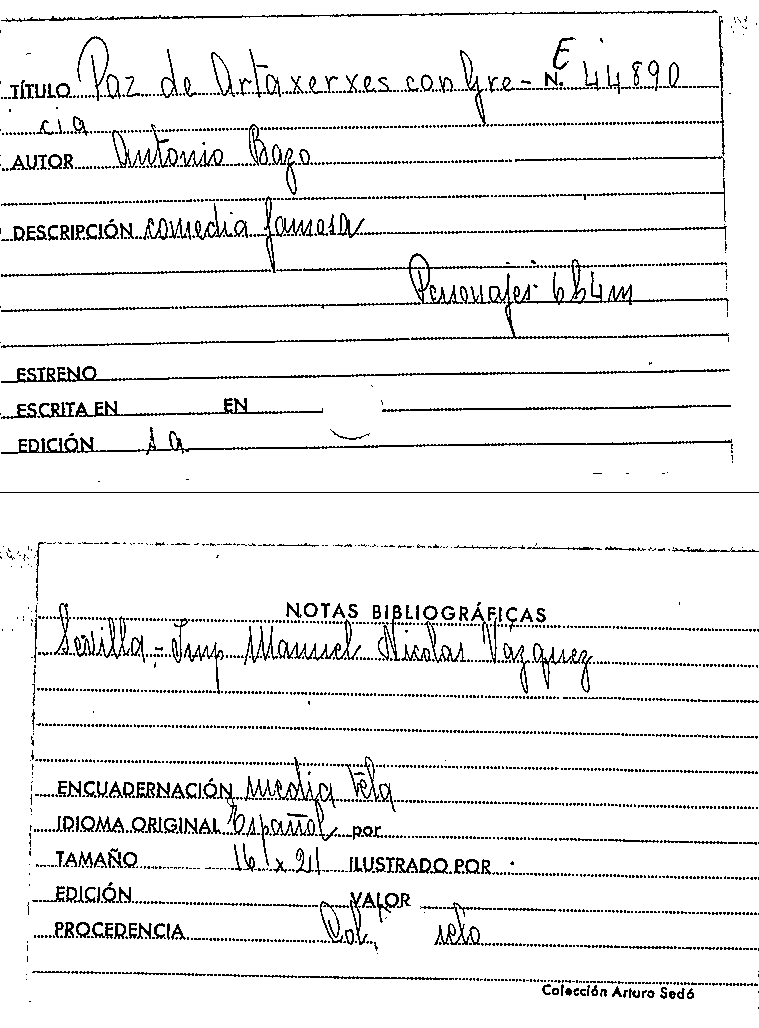 TÍTULO Paz de Artaxerxes con Gre- E N.º 44890
cia
AUTOR Antonio Bazo
DESCRIPCIÓN comedia famosa
Personajes 6h4m
ESTRENO
ESCRITA EN EN
EDICIÓN s a
NOTAS BIBLIOGRÁFICAS
Sevilla.- Imp Manuel Nicolas Vázquez
ENCUADERNACIÓN media tela
IDIOMA ORIGINAL Español por
TAMAÑO 16 x 21 ILUSTRADO POR
EDICIÓN VALOR
PROCEDENCIA
Colección Arturo Sedó